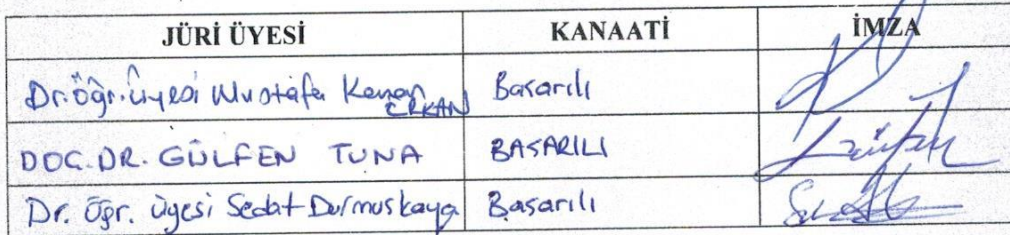 JÜRİ ÜYESİ KANAATİ İMZA
Dr. Öğr. Üyesi Mustafa Kenan ERKAN Başarılı
DOC. DR. GÜLFEN TUNA BAŞARILI
Dr. Öğr. Üyesi Sedat Durmuskaya Başarılı